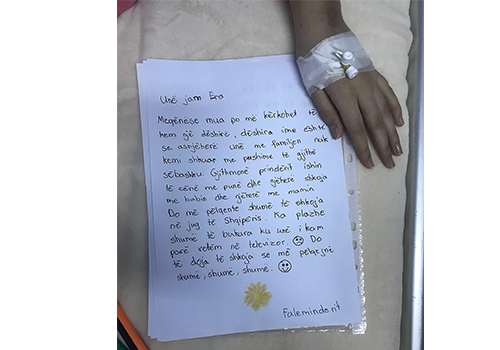 Unë jam Era
Meqënëse mua po më kërkohet të
kem një dëshirë, dëshira ime është
se asnjëherë unë me familjen nuk
kemi shkuar me pushime të gjithë
sëbashku. Gjithmonë prindërit ishin
të zënë me punë dhe njëherë shkoja
me babin dhe njëherë me mamin
Do më pëlqente shumë të shkoja
në jug të Shqipëris. Ka plazhe
shumë të bukura ku unë i kam
parë vetëm në televizor. ☹ Do
të doja të shkoja se më pëlqejnë
shumë, shumë, shumë. ☺
Faleminderit